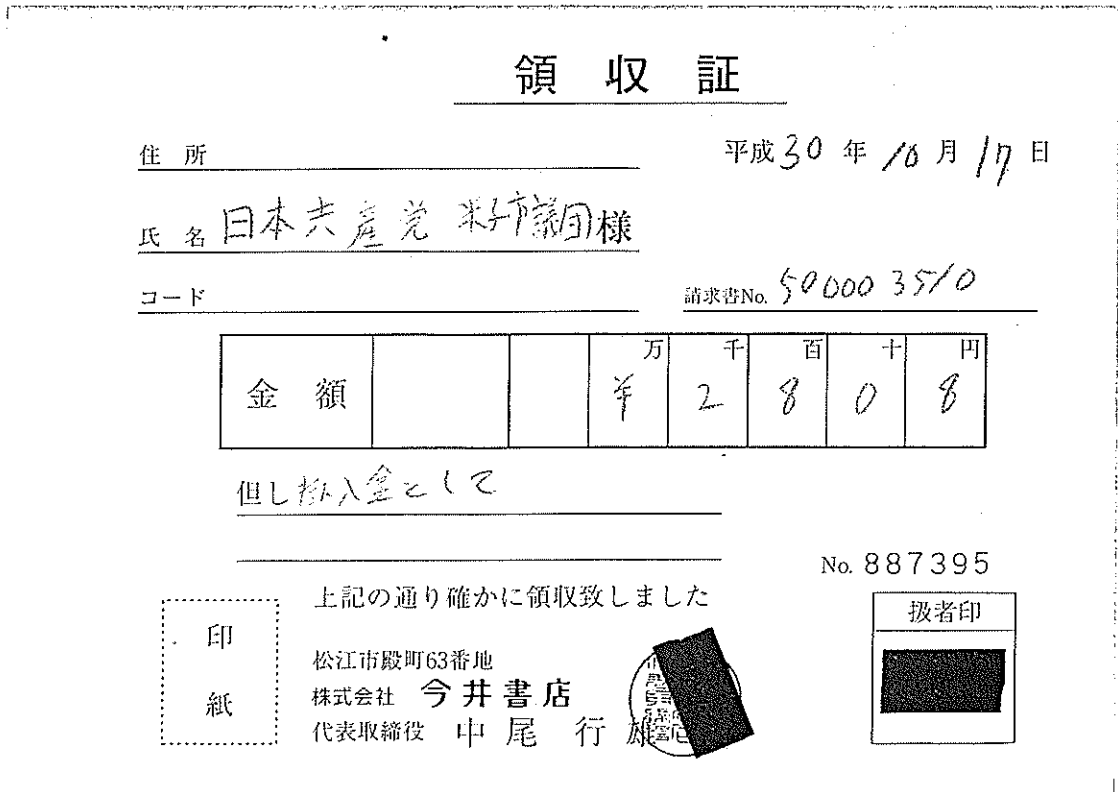 領収証
住所
平成30年10月17日
氏名 日本共産党 米子市議団様
コード
請求書No. 500003510
金額 万 千 百 十 円
¥ 2 8 0 8
但し 掛入金として
No. 887395
上記の通り確かに領収致しました
印紙
扱者印
松江市殿町63番地
株式会社 今井書店
代表取締役 中尾行雄